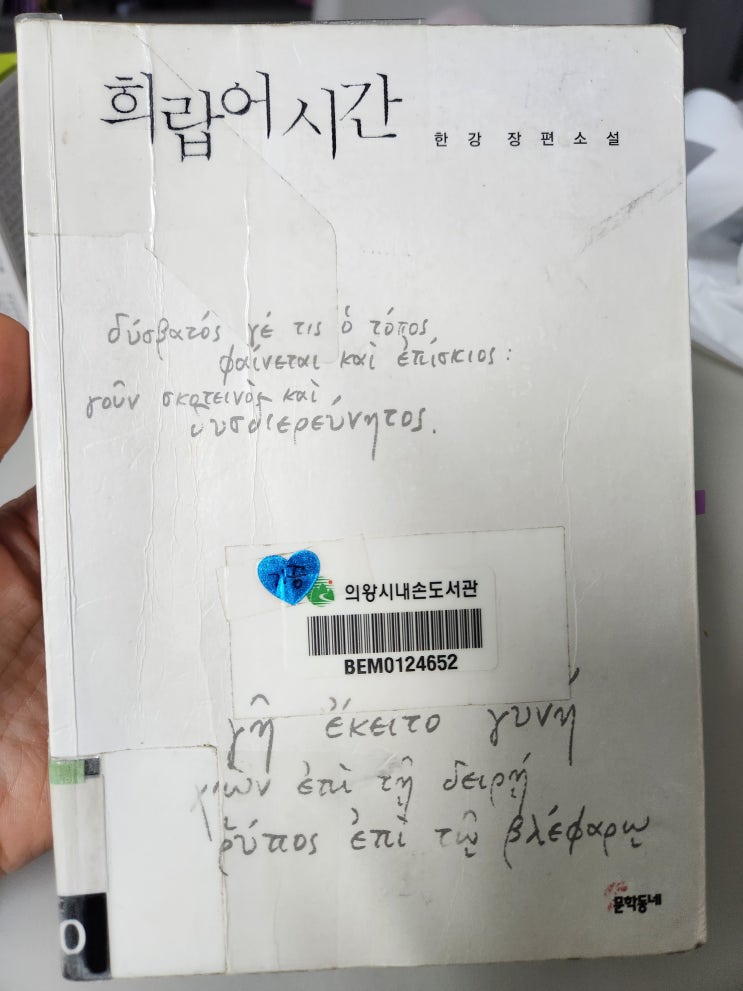 희랍어 시간
한강 장편소설
δύσβατός γέ τις ὁ τόπος
φαίνεται καὶ ἐπίσκιος:
γοῦν σκοτεινὸς καὶ
δυσδιερεύνητος.
기증
의왕시내손도서관
BEM0124652
γῆ ἔκειτο γυνή
χιὼν ἐπὶ τῇ δειρῇ
ῥύπος ἐπὶ τῷ βλέφαρῳ
문학동네
0